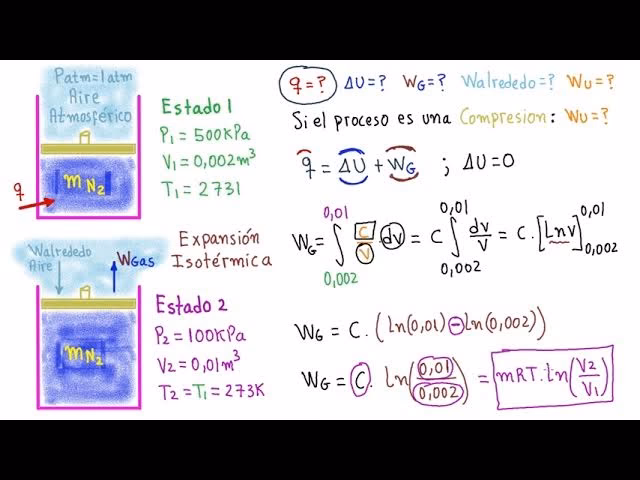 Patm=1atm
Aire
Atmosférico
Estado 1
P1 = 500KPa
V1 = 0,002m³
T1 = 2731
q
mN2
Expansión
Isotérmica
Walrededo
Aire
WGas
Estado 2
P2 = 100KPa
V2 = 0,01m³
T2 = T1 = 273K
mN2
q=? ΔU=? WG=? Walrededo=? Wu=?
Si el proceso es una Compresion: Wu=?
q = ΔU + WG ; ΔU=0
WG = ∫ 0,002 0,01 C/V · dv = C ∫ 0,002 0,01 dv/V = C · [Lnv] 0,002 0,01
WG = C · (ln(0,01) − ln(0,002))
WG = C · ln(0,01/0,002) = mRT · ln(V2/V1)